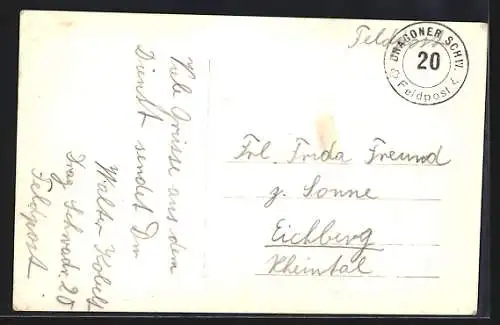 Feldpost
DRAGONER SCHW.
20
Feldpost
Viele Grüsse aus dem
Dienst sendet Dir
Walter
Drag. Schwadr. 20
Feldpost.
Frl. Frida Freund
z. Sonne
Eichberg
Rheintal